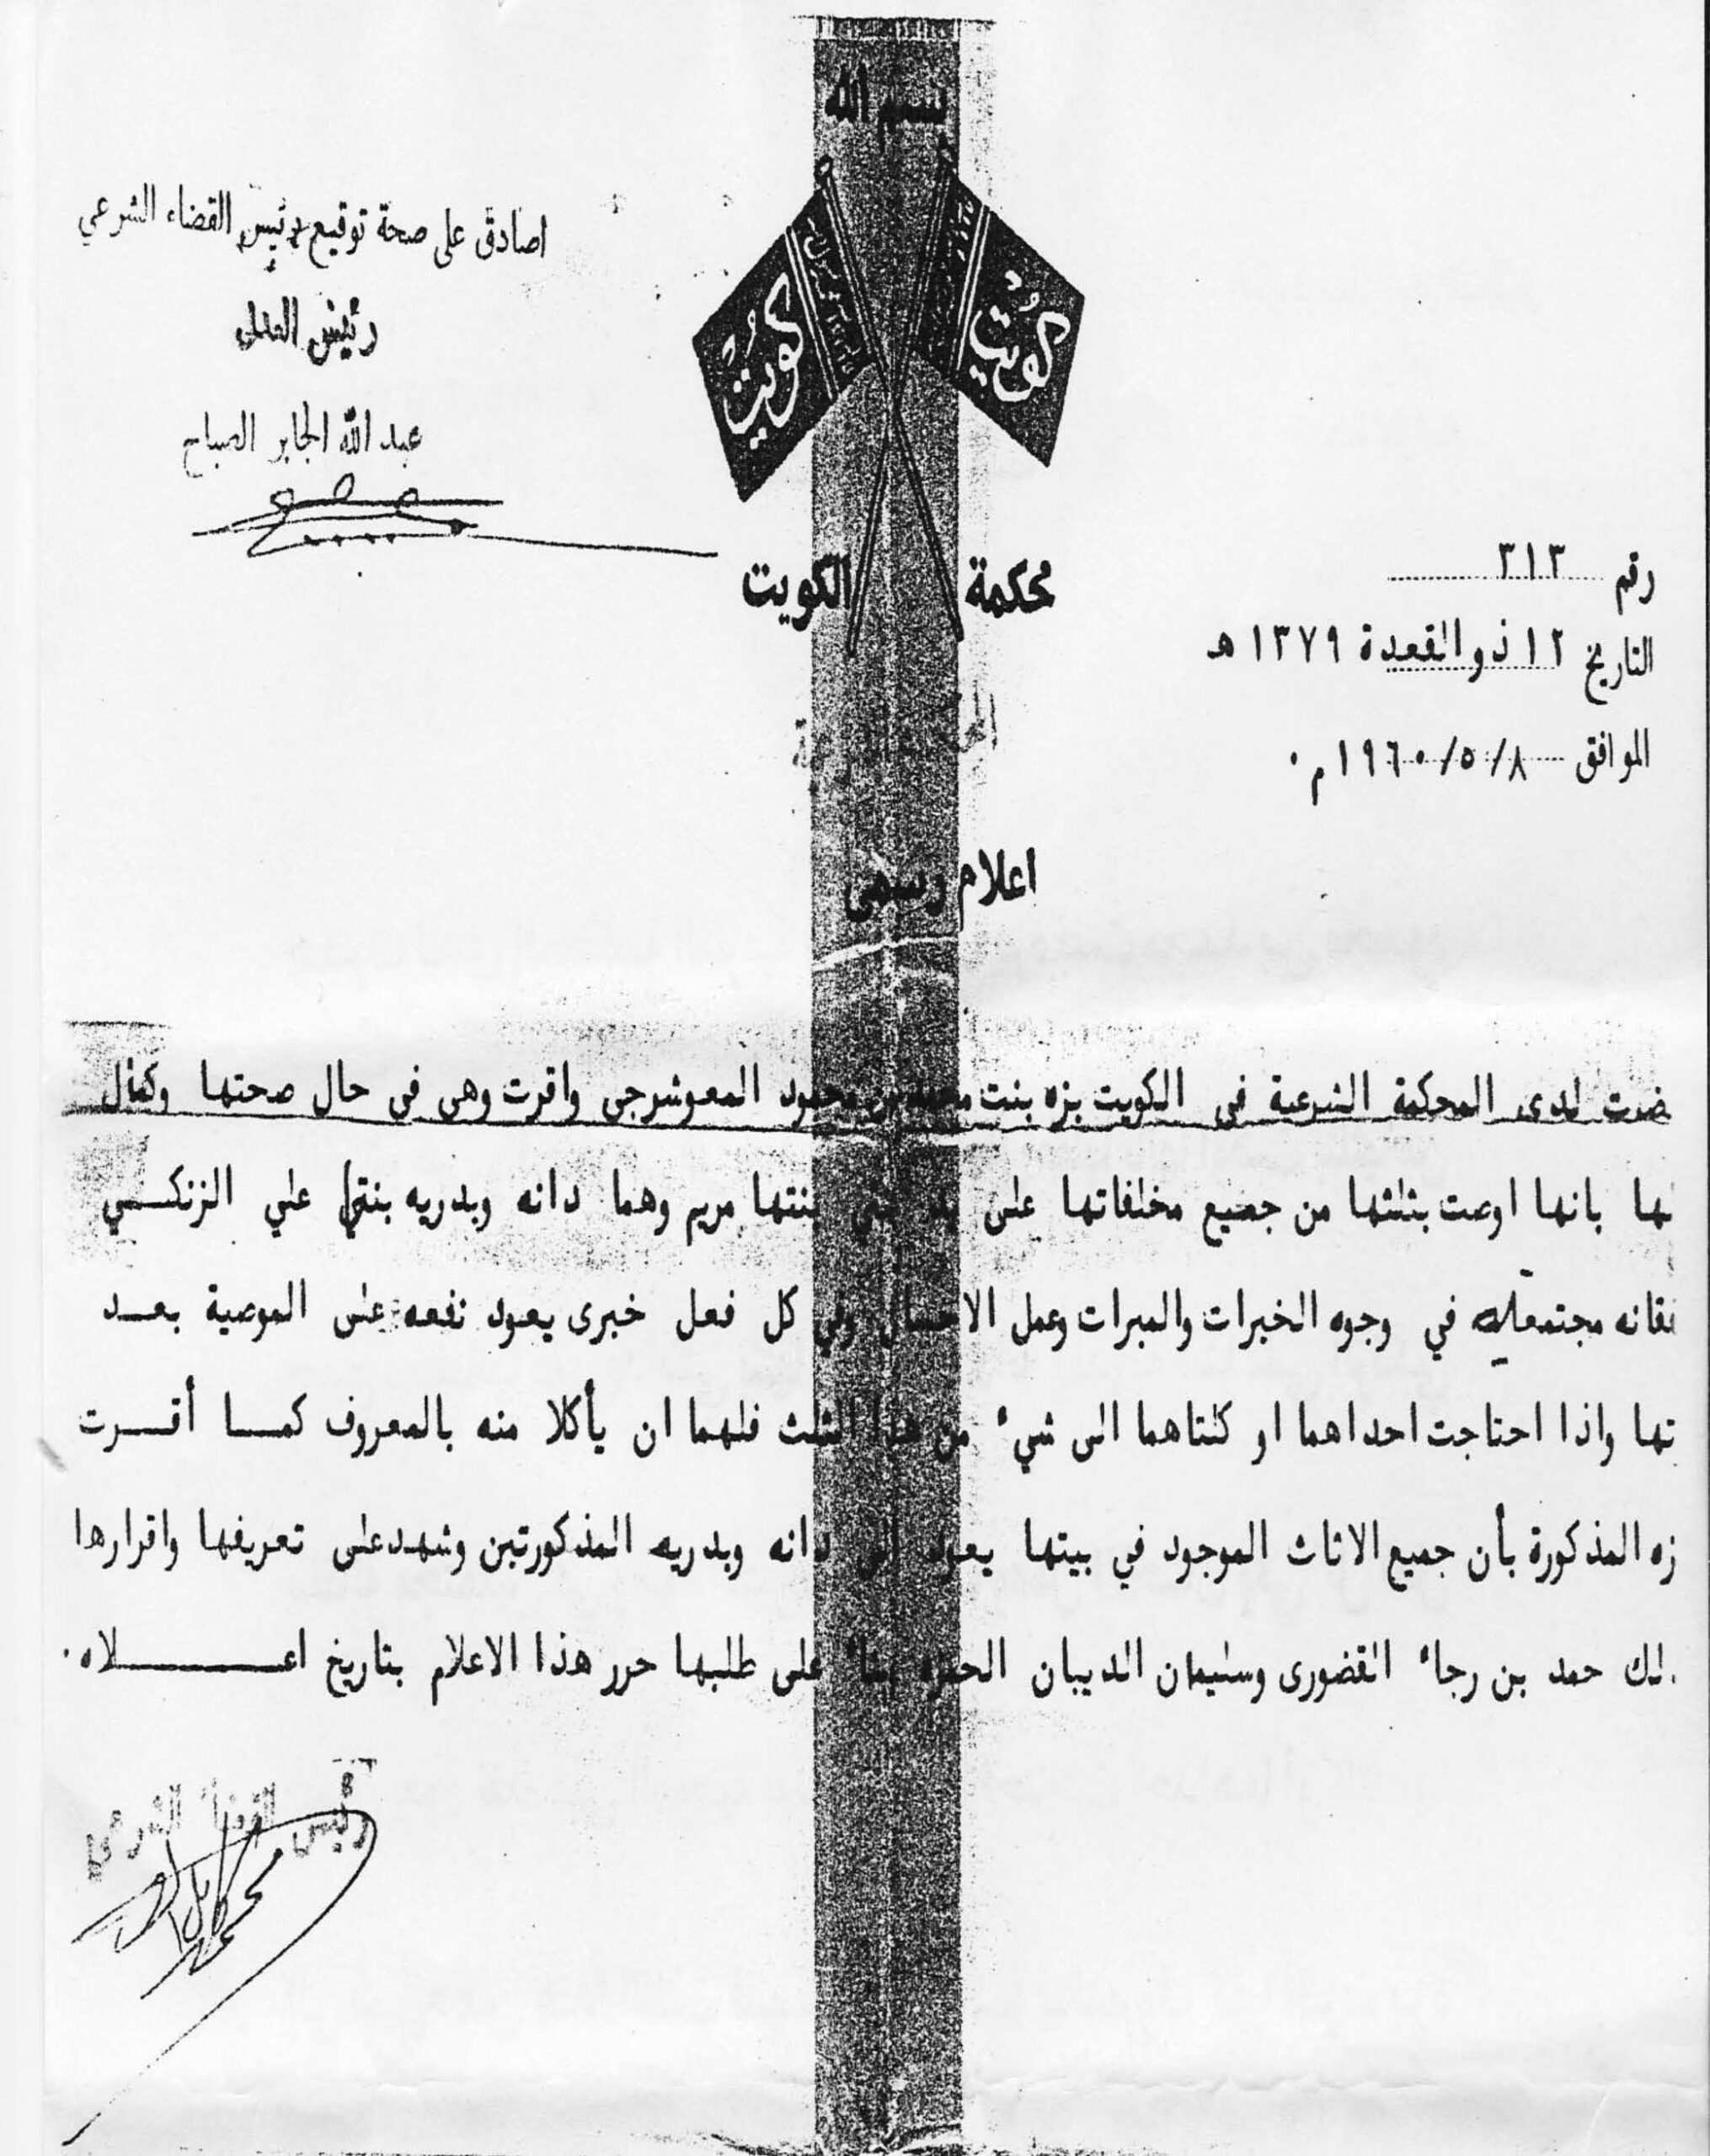 بسم الله
اصادق على صحة توقيع رئيس القضاء الشرعي
رئيس العدل
عبد الله الجابر الصباح
كويت
كويت
محكمة الكويت
رقم ٣١٣
التاريخ ١٢ ذو القعدة ١٣٧٩ هـ
الموافق ٨/٥/١٩٦٠م٠
اعلام رسمي
ضرت لدى المحكمة الشرعية في الكويت بزه بنت محمد بن محمود المعوشرجي واقرت وهي في حال صحتها وكمال
لها بانها اوصت بثلثها من جميع مخلفاتها على يد بنتي بنتها مريم وهما دانه وبدريه بنتي علي الزنكي
في وجوه الخيرات والمبرات وعمل الاحسان وفي كل فعل خيرى يعود نفعه على الموصية بعد
تها واذا احتاجت احداهما او كلتاهما الى شيء من هذا الثلث فلهما ان يأكلا منه بالمعروف كما أقرت
زه المذكورة بأن جميع الاثاث الموجود في بيتها يعود الى دانه وبدريه المذكورتين وشهد على تعريفها واقرارها
لك حمد بن رجاء القضورى وسليمان الديبان على طلبها حرر هذا الاعلام بتاريخ اعلاه٠
رئيس القضاء الشرعي